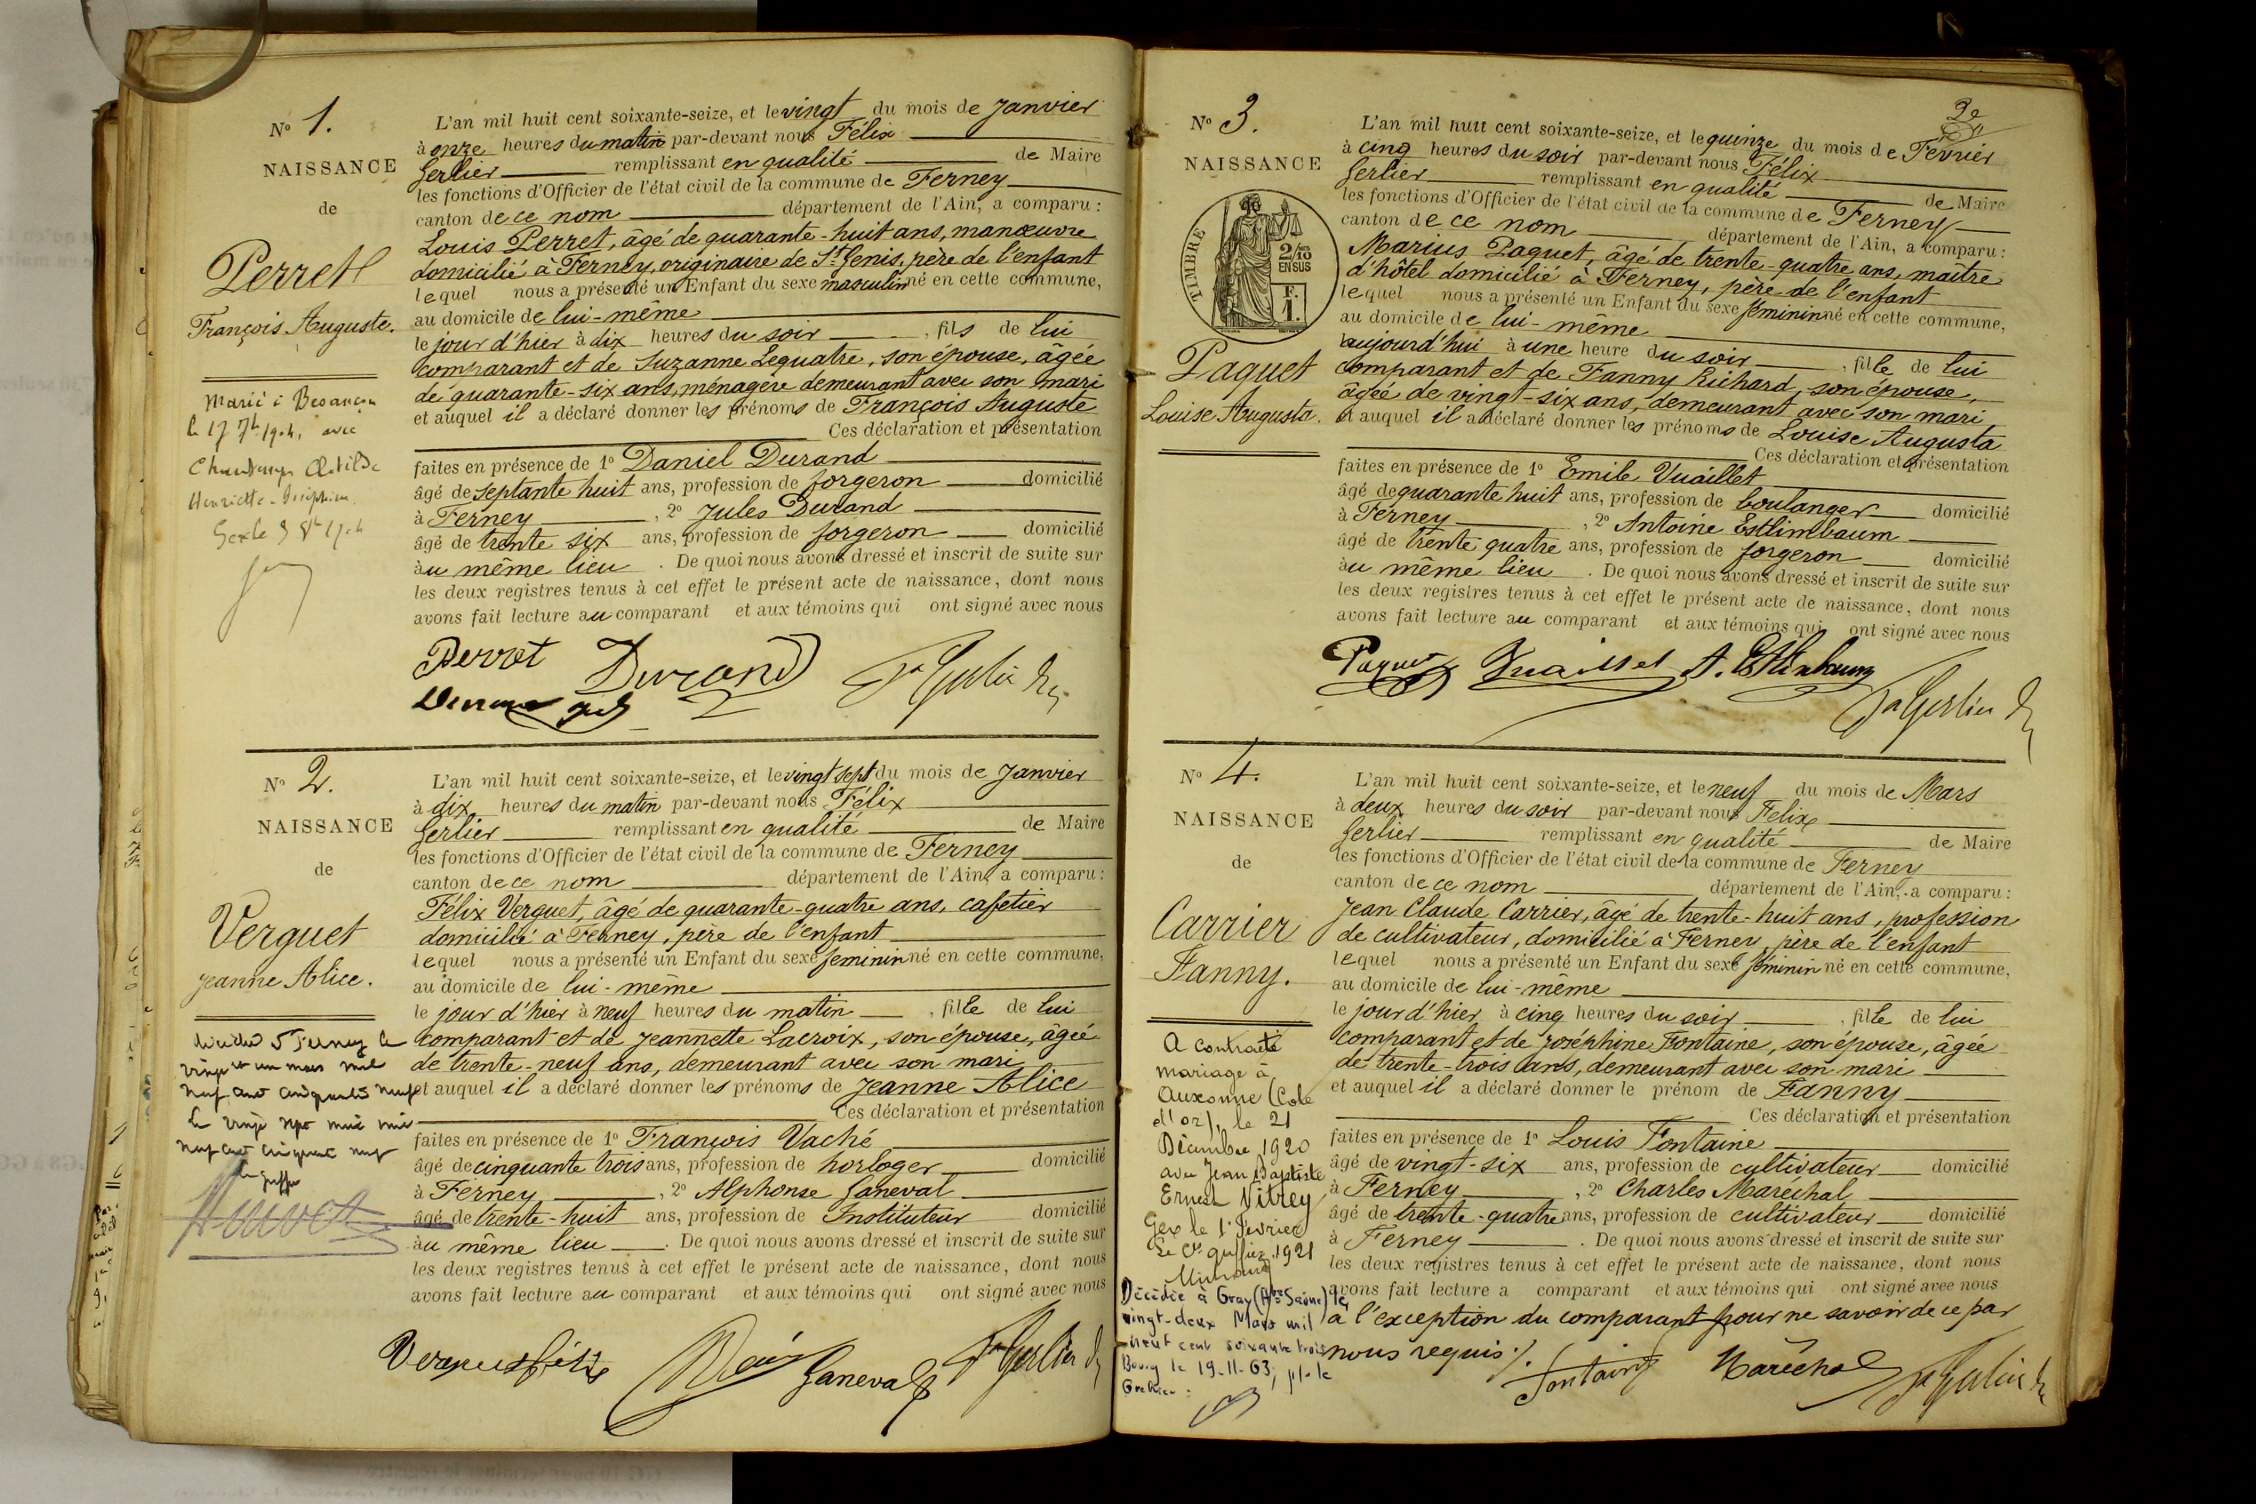 N° 1.
NAISSANCE
de
Perret
François Auguste.
Marié à Besançon
le 17 7bre 1904, avec
Clotilde
Henriette-Joséphine
Gex le 3 8bre 1904
L'an mil huit cent soixante-seize, et le vingt du mois de Janvier
à onze heures du matin par-devant nous Félix
Gerlier remplissant en qualité de Maire
les fonctions d'Officier de l'état civil de la commune de Ferney
canton de ce nom département de l'Ain, a comparu :
Louis Perret, âgé de quarante-huit ans, manœuvre
domicilié à Ferney, originaire de St Genis, père de l'enfant
lequel nous a présenté un Enfant du sexe masculin né en cette commune,
au domicile de lui-même
le jour d'hier à dix heures du soir, fils de lui
comparant et de Suzanne Lequatre, son épouse, âgée
de quarante-six ans, ménagère demeurant avec son mari
et auquel il a déclaré donner les prénoms de François Auguste
Ces déclaration et présentation
faites en présence de 1° Daniel Durand
âgé de septante huit ans, profession de forgeron domicilié
à Ferney, 2° Jules Durand
âgé de trente six ans, profession de forgeron domicilié
au même lieu. De quoi nous avons dressé et inscrit de suite sur
les deux registres tenus à cet effet le présent acte de naissance, dont nous
avons fait lecture au comparant et aux témoins qui ont signé avec nous
Perret Durand
N° 2.
NAISSANCE
de
Verguet
Jeanne Alice.
décédée à Ferney le
vingt et un mars mil
neuf cent cinquante neuf
Le vingt sept mars mil
neuf cent cinquante neuf
le greffier
L'an mil huit cent soixante-seize, et le vingt sept du mois de Janvier
à dix heures du matin par-devant nous Félix
Gerlier remplissant en qualité de Maire
les fonctions d'Officier de l'état civil de la commune de Ferney
canton de ce nom département de l'Ain, a comparu :
Félix Verguet, âgé de quarante-quatre ans, cafetier
domicilié à Ferney, père de l'enfant
lequel nous a présenté un Enfant du sexe féminin né en cette commune,
au domicile de lui-même
le jour d'hier à neuf heures du matin, fille de lui
comparant et de Jeannette Lacroix, son épouse, âgée
de trente-neuf ans, demeurant avec son mari
et auquel il a déclaré donner les prénoms de Jeanne Alice
Ces déclaration et présentation
faites en présence de 1° François Vaché
âgé de cinquante trois ans, profession de horloger domicilié
à Ferney, 2° Alphonse Ganeval
âgé de trente-huit ans, profession de Instituteur domicilié
au même lieu. De quoi nous avons dressé et inscrit de suite sur
les deux registres tenus à cet effet le présent acte de naissance, dont nous
avons fait lecture au comparant et aux témoins qui ont signé avec nous
Verguet félix Ganeval
3e
N° 3.
NAISSANCE
TIMBRE
2/10
EN SUS
F.
1.
Paquet
Louise Augusta.
L'an mil huit cent soixante-seize, et le quinze du mois de Février
à cinq heures du soir par-devant nous Félix
Gerlier remplissant en qualité de Maire
les fonctions d'Officier de l'état civil de la commune de Ferney
canton de ce nom département de l'Ain, a comparu :
Marius Paquet, âgé de trente-quatre ans, maître
d'hôtel domicilié à Ferney, père de l'enfant
lequel nous a présenté un Enfant du sexe féminin né en cette commune,
au domicile de lui-même
aujourd'hui à une heure du soir, fille de lui
comparant et de Fanny Richard, son épouse,
âgée de vingt-six ans, demeurant avec son mari
et auquel il a déclaré donner les prénoms de Louise Augusta
Ces déclaration et présentation
faites en présence de 1° Emile Vuaillet
âgé de quarante huit ans, profession de boulanger domicilié
à Ferney, 2° Antoine Estlimbaum
âgé de trente quatre ans, profession de forgeron domicilié
au même lieu. De quoi nous avons dressé et inscrit de suite sur
les deux registres tenus à cet effet le présent acte de naissance, dont nous
avons fait lecture au comparant et aux témoins qui ont signé avec nous
Paquet Vuaillet
N° 4.
NAISSANCE
de
Carrier
Fanny.
A contracté
mariage à
Auxonne (Cote
d'or), le 21
Décembre 1920
avec Jean Baptiste
Ernest Vitrey
Gex le 1er Février
Le Cis greffier 1921
Décédée à Gray (Hte Saône) le
vingt-deux Mars mil
neuf cent soixante trois
Bourg le 19-11-63, pr le
Greffier :
L'an mil huit cent soixante-seize, et le neuf du mois de Mars
à deux heures du soir par-devant nous Félix
Gerlier remplissant en qualité de Maire
les fonctions d'Officier de l'état civil de la commune de Ferney
canton de ce nom département de l'Ain, a comparu :
Jean Claude Carrier, âgé de trente-huit ans, profession
de cultivateur, domicilié à Ferney, père de l'enfant
lequel nous a présenté un Enfant du sexe féminin né en cette commune,
au domicile de lui-même
le jour d'hier à cinq heures du soir, fille de lui
comparant et de Joséphine Fontaine, son épouse, âgée
de trente-trois ans, demeurant avec son mari
et auquel il a déclaré donner le prénom de Fanny
Ces déclaration et présentation
faites en présence de 1° Louis Fontaine
âgé de vingt-six ans, profession de cultivateur domicilié
à Ferney, 2° Charles Maréchal
âgé de trente-quatre ans, profession de cultivateur domicilié
à Ferney. De quoi nous avons dressé et inscrit de suite sur
les deux registres tenus à cet effet le présent acte de naissance, dont nous
avons fait lecture a comparant et aux témoins qui ont signé avec nous
a l'exception du comparant pour ne savoir de ce par
nous requis ./.
Fontaine Maréchal